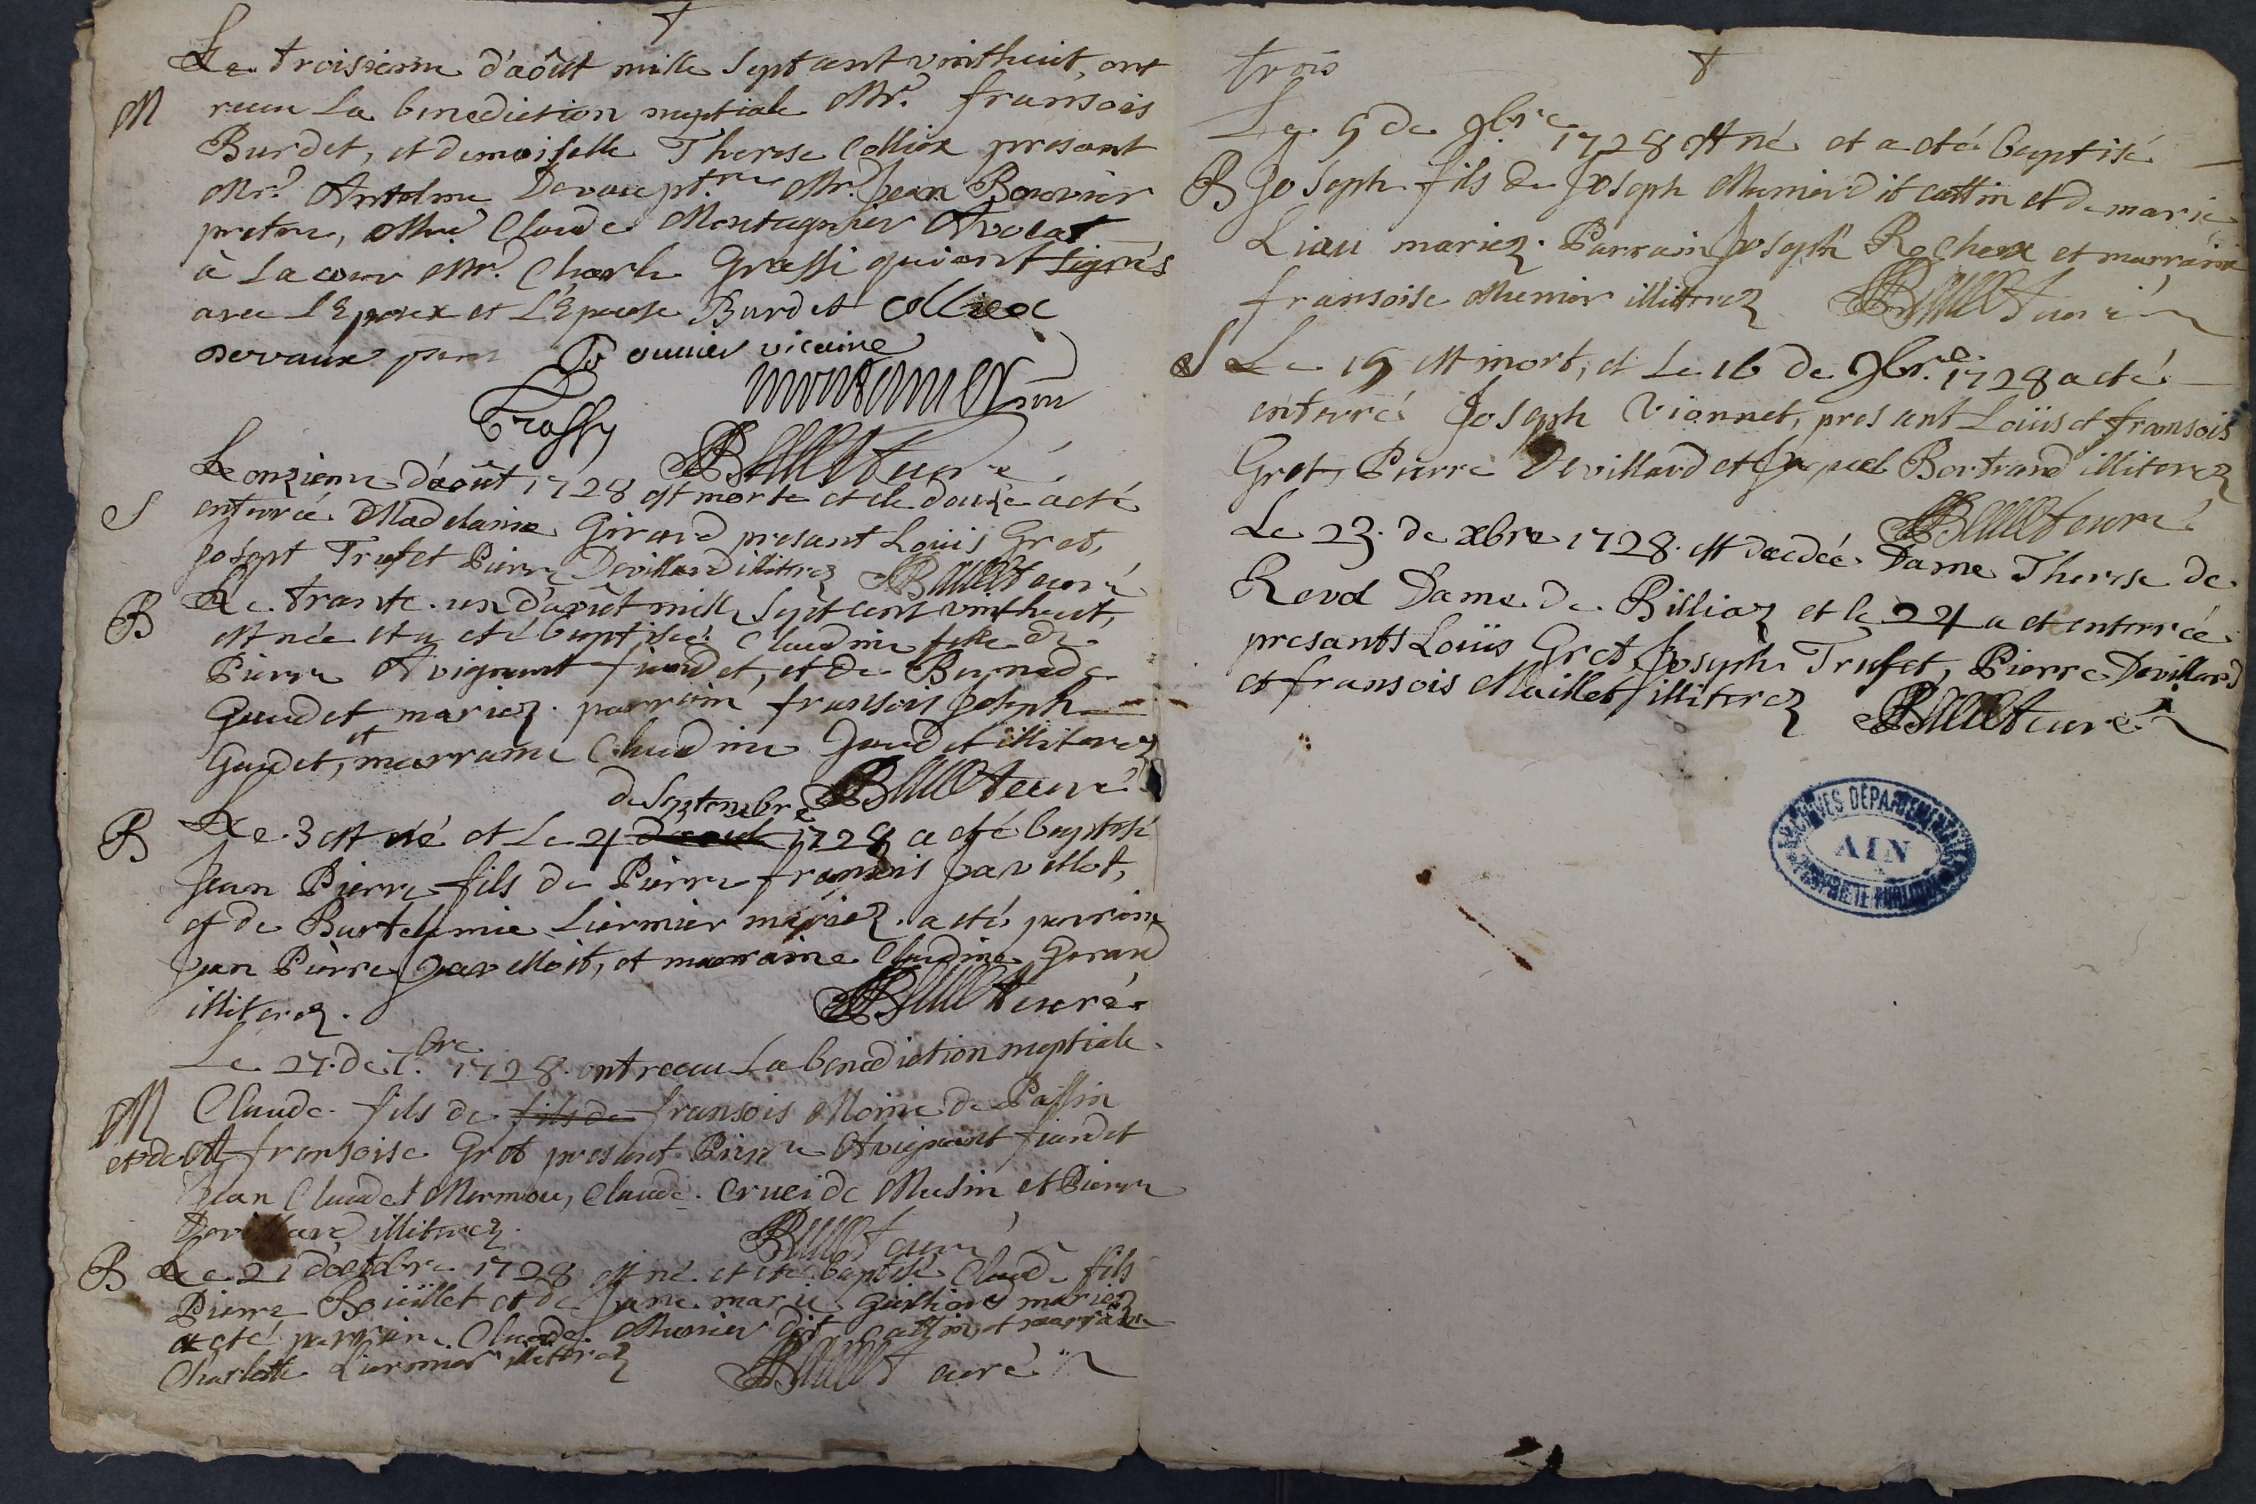 Le troisieme d'aôut mille sept cent vintheuit, ont
M receu La benediction nuptiale Mr. fransois
Burdet, et demoiselle Therese Colliex presant
Mr. Antelme Devaux ptre Mr. Jean Bouvier
pretre, Mre Claude Montagnier Avocat
à La cour Mr. Charle Grassi qui ont signés
avec L'Epoux et L'Epouse Burdet Colliex
Devaux Bouvier vicaire
Grassy
Le onzieme d'aoút 1728 est morte et le douze a eté curé
S enterrée Madelaine Girard presant Loüis Gret,
Josept Trufet Pierre Devillard illiterez curé
B Le trante-un d'aoút mille sept cent vintheuit,
est née et a eté baptisée Claudine fille de
Pierre Avignant fiardet, et de Bernarde
Gaudet mariez. parrain fransois Joseph
Gaudet, et marraine Claudine Gaudet illiterez
curé
de Septembre
B Le 3 est né et Le 4 d'aout 1728 a eté baptisé
Jean Pierre fils de Pierre fransois Javellot,
et de Bartelemie Liermier mariez. a eté parrain
Jean Pierre Javellot, et marraine Claudine Gerard
illiterez. curé
Le 27. de 7.bre 1728. ont receu La benediction nuptiale
M Claude fils de fils de fransois Moine de Passin
et de fransoise Gret presant Pierre Avignant fiardet
Jean Claudet Mermou, Claude Cruci de Musin et Pierre
Devillard illiterez. curé
B Le 21 d'octobre 1728 est né et eté baptisé Claude fils
Pierre Boüillet et de Jane marie Guilliard mariez
a eté parrain Claude Munier dit Cattin et marraine
Charlotte Liermier illiterez curé
trois
Le 9 de 9br.e 1728 est né et a eté baptisé
B Joseph fils de Joseph Munier dit cattin et de marie
Liau mariez. Parrain Joseph Rochex et marraine
fransoise Munier illiterez curé
S Le 15 est mort, et Le 16 de 9br.e 1728 a eté
enterré Joseph Vionnet, presant Loüis et fransois
Gret, Pierre Devillard et Jaquel Bertrand illiterez
curé
Le 23. de xbre 1728. est decdée Dame Therese de
Revol Dame de Billiaz et le 24 a et enterrée
presants Loüis Gret Joseph Trufet, Pierre Devillard
et fransois Maillet illiterez curé
ARCHIVES DÉPARTEMENTALES
AIN
PROPRIÉTÉ PUBLIQUE